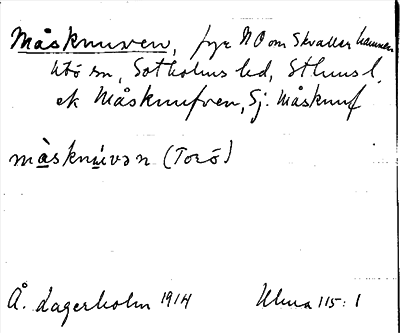 Måsknuven, fyr NO om Skvallerhamnen
Utö sn, Sotholms hd, Sthms l.
ek Måsknufven, Sj. Måsknuf
måsknúvən (Torö)
Å. Lagerholm 1914 Ulma 115:1